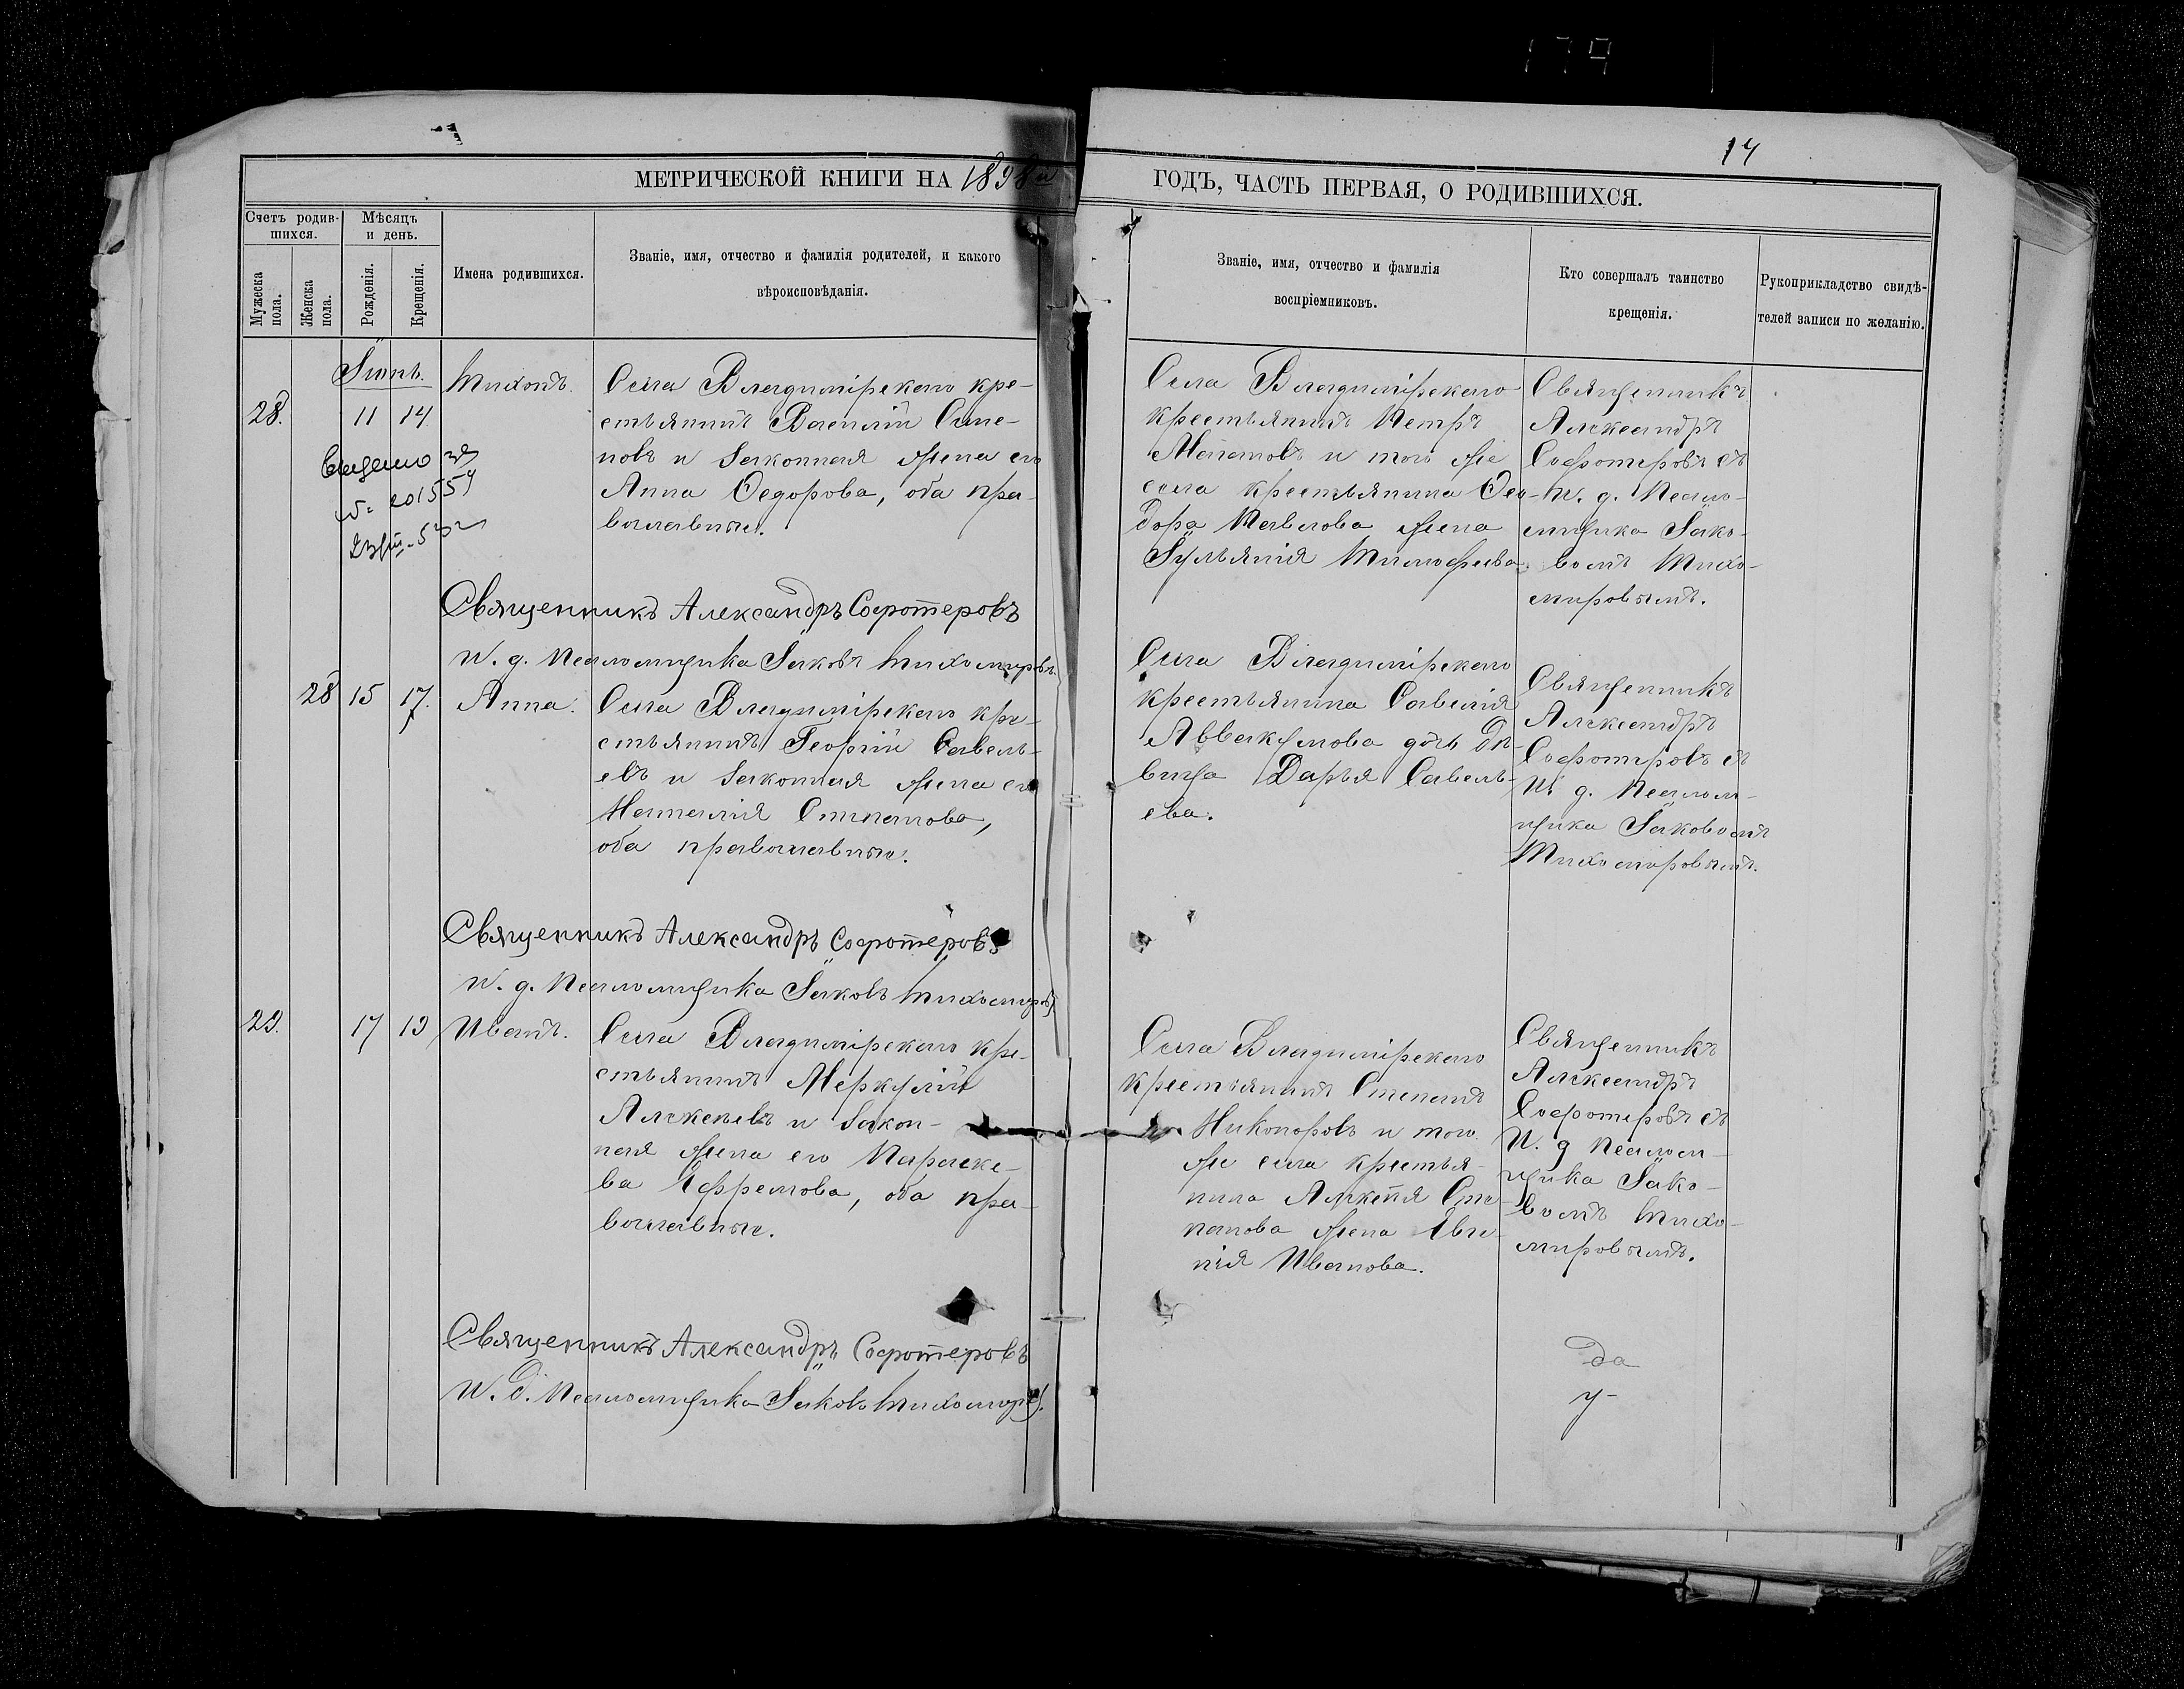 179
14
МЕТРИЧЕСКОЙ КНИГИ НА 1898й
ГОДЪ, ЧАСТЬ ПЕРВАЯ, О РОДИВШИХСЯ.
Счетъ родив-
шихся.
Мужеска
пола.
Женска
пола.
Мѣсяцъ
и день.
Рожденія.
Крещенія.
Имена родившихся.
Званіе, имя, отчество и фамилія родителей, и какого
вѣроисповѣданія.
Званіе, имя, отчество и фамилія
воспріемниковъ.
Кто совершалъ таинство
крещенія.
Рукоприкладство свидѣ-
телей записи по желанію.
Іюнь.
28. 11 14 Тихонъ.
Села Владимірскаго кре-
стьянинъ Василій Симе-
новъ и законная жена его
Анна Ѳедорова, оба пра-
вославные.
Села Владимірскаго
крестьянинъ Петръ
и того же
села крестьянина Ѳео-
дора Павлова жена
Іуліянія Тимофеева.
Священникъ
Александръ
Софотеровъ съ
И. д. Псало-
мщика Іако-
вомъ Тихо-
мировымъ.
Священникъ Александръ Софотеровъ
И. д. Псаломщика Іаковъ Тихомировъ.
28 15 17. Анна.
Села Владимірскаго кре-
стьянинъ Георгій Савель-
евъ и законная жена его
Наталія Стипанова,
оба православные.
Села Владимірскаго
крестьянина Савелія
Аввакумова дочь дѣ-
вица Дарья Савель-
ева.
Священникъ
Александръ
Софотеровъ съ
И. д. Псалом-
щика Іаковомъ
Тихомировымъ.
Священникъ Александръ Софотеровъ
И. д. Псаломщика Іаковъ Тихомировъ
29. 17 19 Иванъ.
Села Владимірскаго кре-
стьянинъ Меркурій
Алексѣевъ и закон-
ная жена его Параске-
ва Ефремова, оба пра-
вославные.
Села Владимірскаго
крестьянинъ Степанъ
Никоноровъ и того
же села крестья-
нина Алексѣя Сте-
панова жена Евге-
нія Иванова.
Священникъ
Александръ
Софотеровъ съ
И. д Псалом-
щика Іако-
вомъ Тихо-
мировымъ.
Священникъ Александръ Софотеровъ
И. д. Псаломщика Іаковъ Тихомировъ.
да